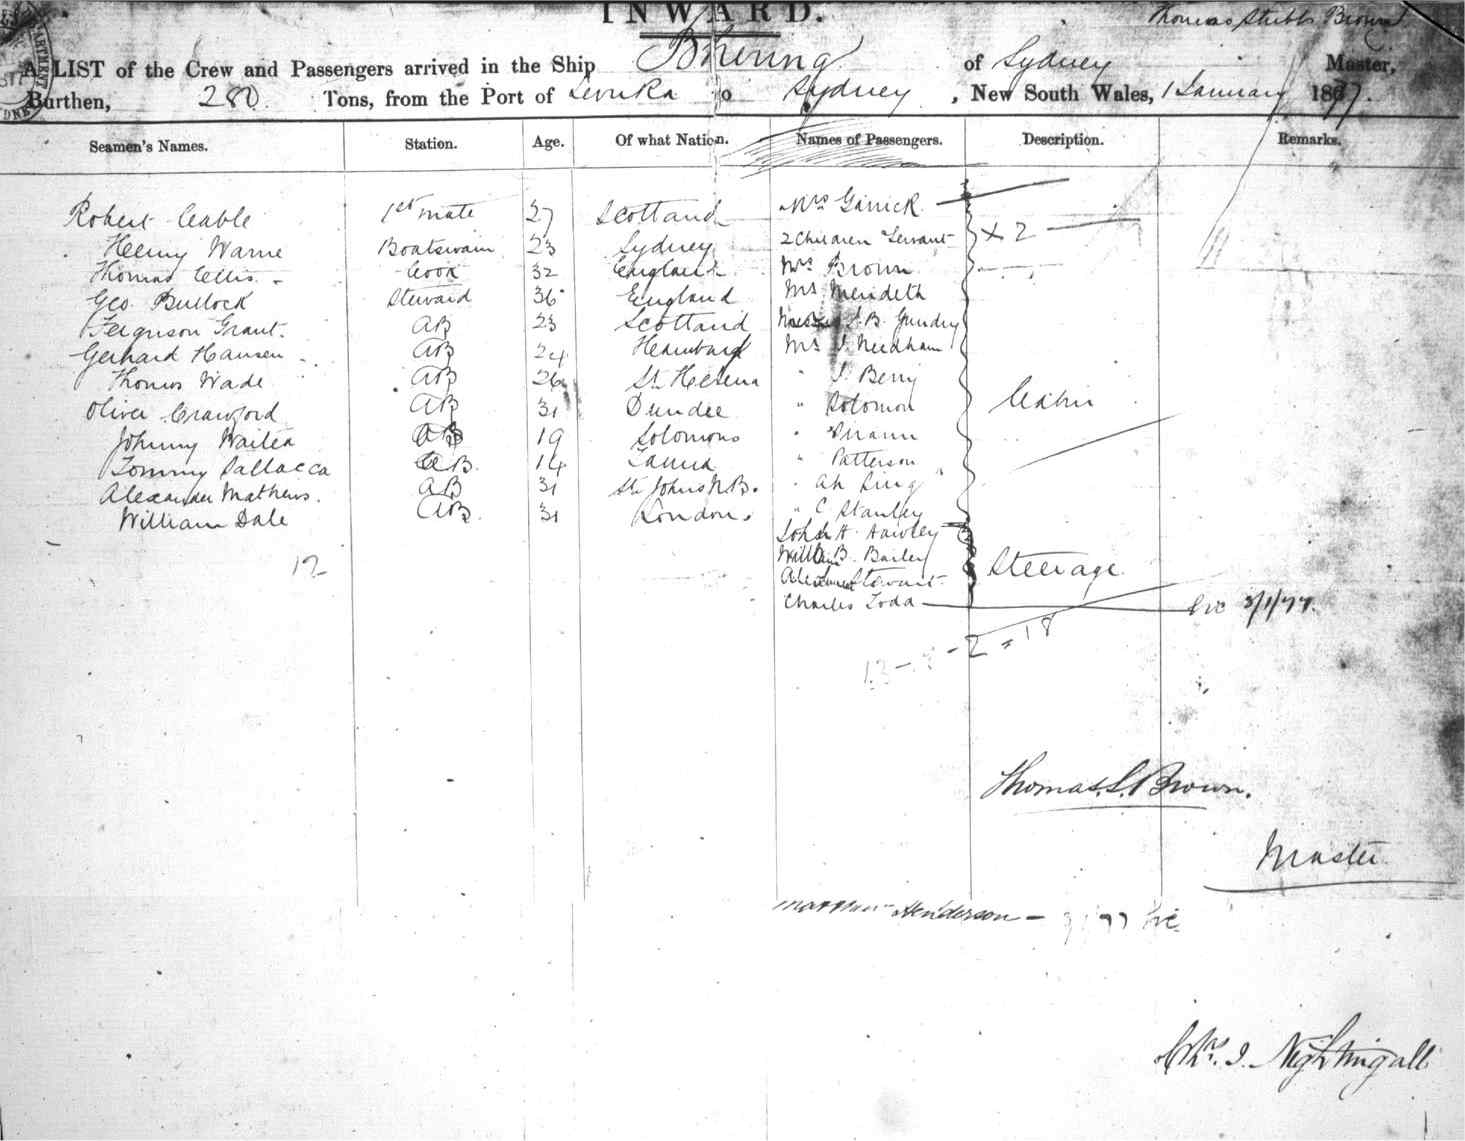 INWARD.
Thomas Stubbs Brown
A LIST of the Crew and Passengers arrived in the Ship of Sydney Master,
Burthen, 280 Tons, from the Port of Levuka to Sydney, New South Wales, 1 January 1877.
Seamen's Names. Station. Age. Of what Nation. Names of Passengers. Description. Remarks.
Robert Cable 1st mate 27 Scotland Mrs Garrick
Henry Warne Boatswain 23 Sydney 2 Children Servant X 2
Thomas Ellis Cook 32 England Mrs Brown
Geo Bullock Steward 36 England Mrs Merideth
Ferguson Grant AB 23 Scotland J. B. Gundry
Gerhard Hansen AB 24 Hamburg Mr J Needham
Thomas Wade AB 26 St Helena " J Berry
Oliver Crawford AB 31 Dundee " Solomon Cabin
Johnny AB 19 Solomons "
Tommy AB 14 Tanna " Patterson
Alexander Mathews. AB 31 St Johns N.B. " Ah
William Dale AB 31 London. " C Stanley
John H Hawley
William B. Bailey
12 Alexander Stewart Steerage
Charles Todd 3/1/77.
- 2 = 18
Thomas. S. Brown.
Master
Matthew Henderson
Nightingall